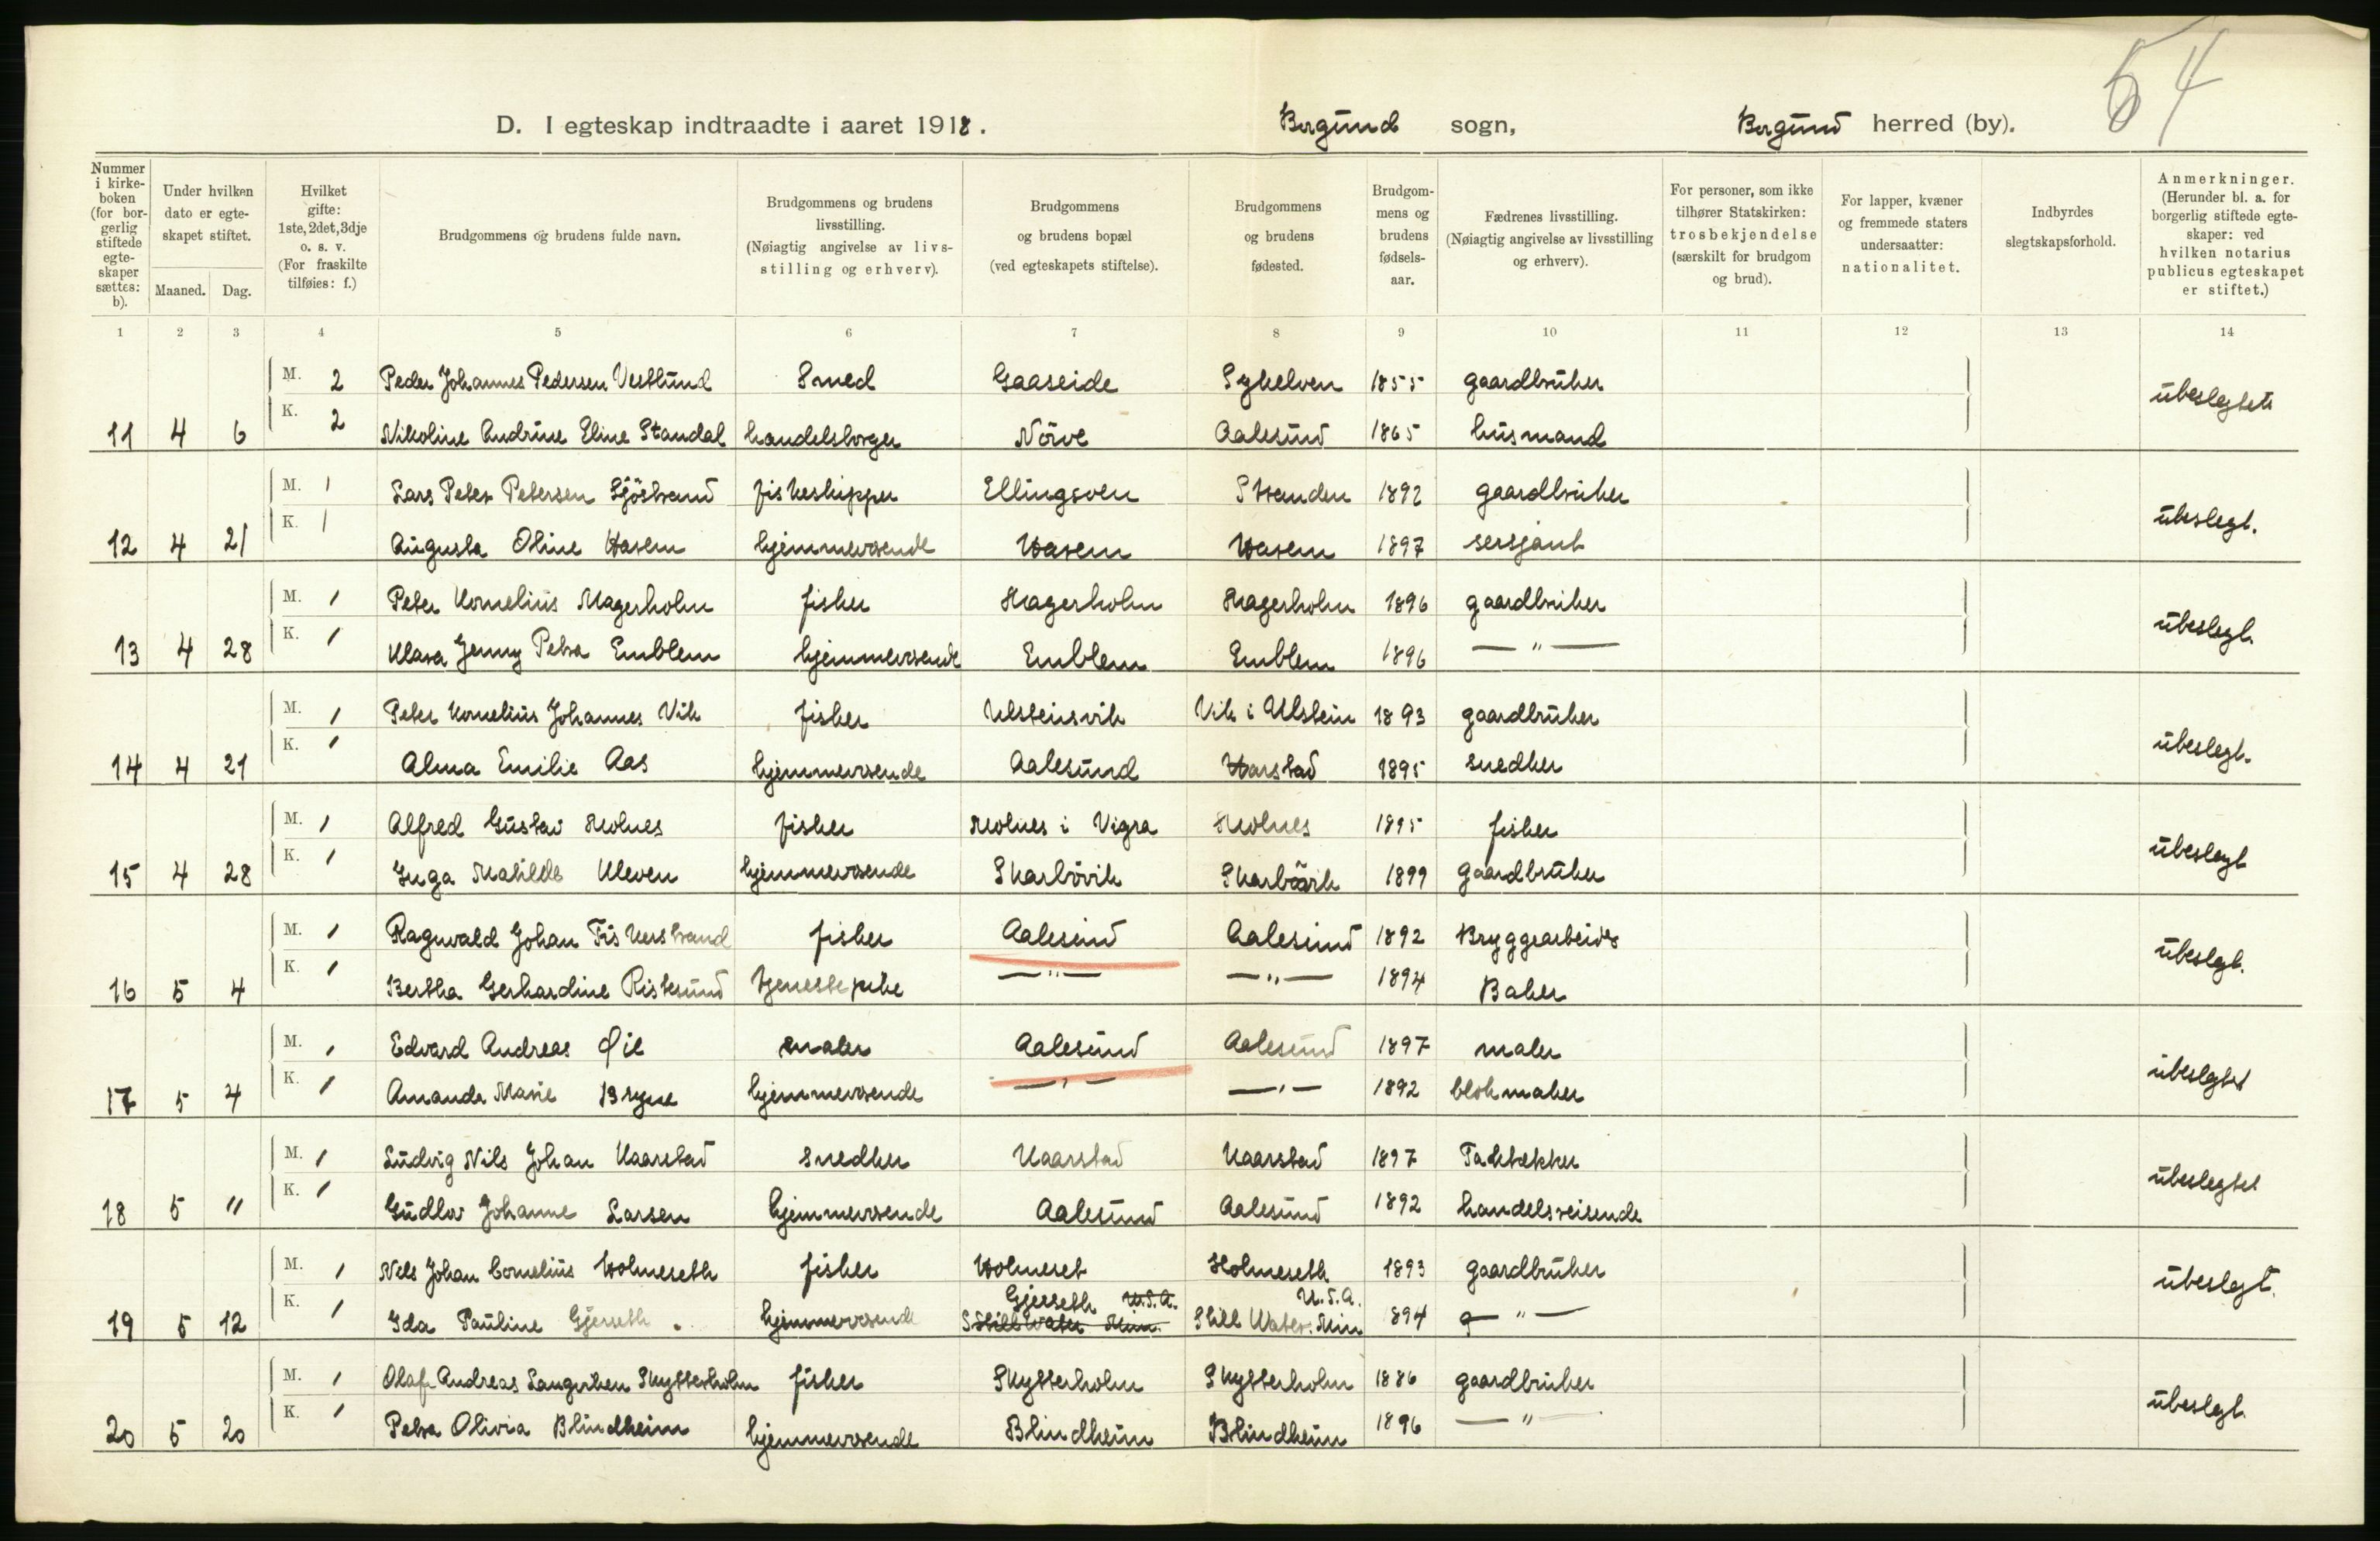 54
D. I egteskap indtraadte i aaret 1918. Borgund sogn, Borgund herred (by).
Nummer i kirkeboken (for borgerlig stiftede egteskaper sættes: b). Under hvilken dato er egteskapet stiftet. Maaned. Dag. Hvilket gifte: 1ste, 2det, 3dje o. s. v. (For fraskilte tilføies: f.) Brudgommens og brudens fulde navn. Brudgommens og brudens livsstilling. (Nøiagtig angivelse av livsstilling og erhverv). Brudgommens og brudens bopæl (ved egteskapets stiftelse). Brudgommens og brudens fødested. Brudgommens og brudens fødselsaar. Fædrenes livsstilling. (Nøiagtig angivelse av livsstilling og erhverv). For personer, som ikke tilhører Statskirken: trosbekjendelse (særskilt for brudgom og brud). For lapper, kvæner og fremmede staters undersaatter: nationalitet. Indbyrdes slegtskapsforhold. Anmerkninger. (Herunder bl. a. for borgerlig stiftede egteskaper: ved hvilken notarius publicus egteskapet er stiftet.)
1 2 3 4 5 6 7 8 9 10 11 12 13 14
M. 2 Peder Johannes Pedersen Vestlund Smed Gaaseide Sykelven 1855 gaardbruker ubeslegtet
11 4 6 K. 2 Nikoline Andrine Eline Standal handelsborger Nörve Aalesund 1865 husmand
M. 1 Lars Peter Petersen Sjöstrand fiskeskipper Ellingsøen Stranden 1892 gaardbruker ubeslegt.
12 4 21 K. 1 Augusta Oline Hasem hjemmeværende Hasem Hasem 1897 sersjant
M. 1 Peter Kornelius Magerholm fisker Magerholm Magerholm 1896 gaardbruker ubeslegt.
13 4 28 K. 1 Klara Jenny Petra Emblem hjemmeværende Emblem Emblem 1896 — " —
M. 1 Peter Kornelius Johannes Vik fisker Ulsteinsvik Vik i Ulstein 1893 gaardbruker ubeslegt.
14 4 21 K. 1 Alma Emilie Aas hjemmeværende Aalesund Harstad 1895 snedker
M. 1 Alfred Gustav Molnes fisker Molnes i Vigra Molnes 1895 fisker ubeslegt
15 4 28 K. 1 Inga Matilde Kleven hjemmeværende Skarbövik Skarbövik 1899 gaardbruker
M. 1 Ragnvald Johan Fiskerstrand fisker Aalesund Aalesund 1892 Bryggearbeider ubeslegt.
16 5 4 K. 1 Bertha Gerhardine Ristesund tjenestepike — " — — " — 1894 Baker
M. 1 Edvard Andreas Øie maler Aalesund Aalesund 1897 maler ubeslegtet
17 5 4 K. 1 Amanda Marie Bryne hjemmeværende — " — — " — 1892 blokmaker
M. 1 Ludvig Nils Johan Kaarstad snedker Kaarstad Kaarstad 1897 Taktækker ubeslegtet
18 5 " K. 1 Gudlov Johanne Larsen hjemmeværende Aalesund Aalesund 1892 handelsreisende
M. 1 Nils Johan Cornelius Holmeseth fisker Holmeset Holmeseth 1893 gaardbruker ubeslegt.
Gjerseth U.S.A. U.S.A.
19 5 12 K. 1 Ida Pauline Gjerseth hjemmeværende Still Water Min. Still Water. Min 894 g — " —
M. 1 Olaf Andreas Langerken Skytterholm fisker Skytterholm Skytterholm 1886 gaardbruker ubeslegt.
20 5 20 K. 1 Petra Olivia Blindheim hjemmeværende Blindheim Blindheim 1896 — " —